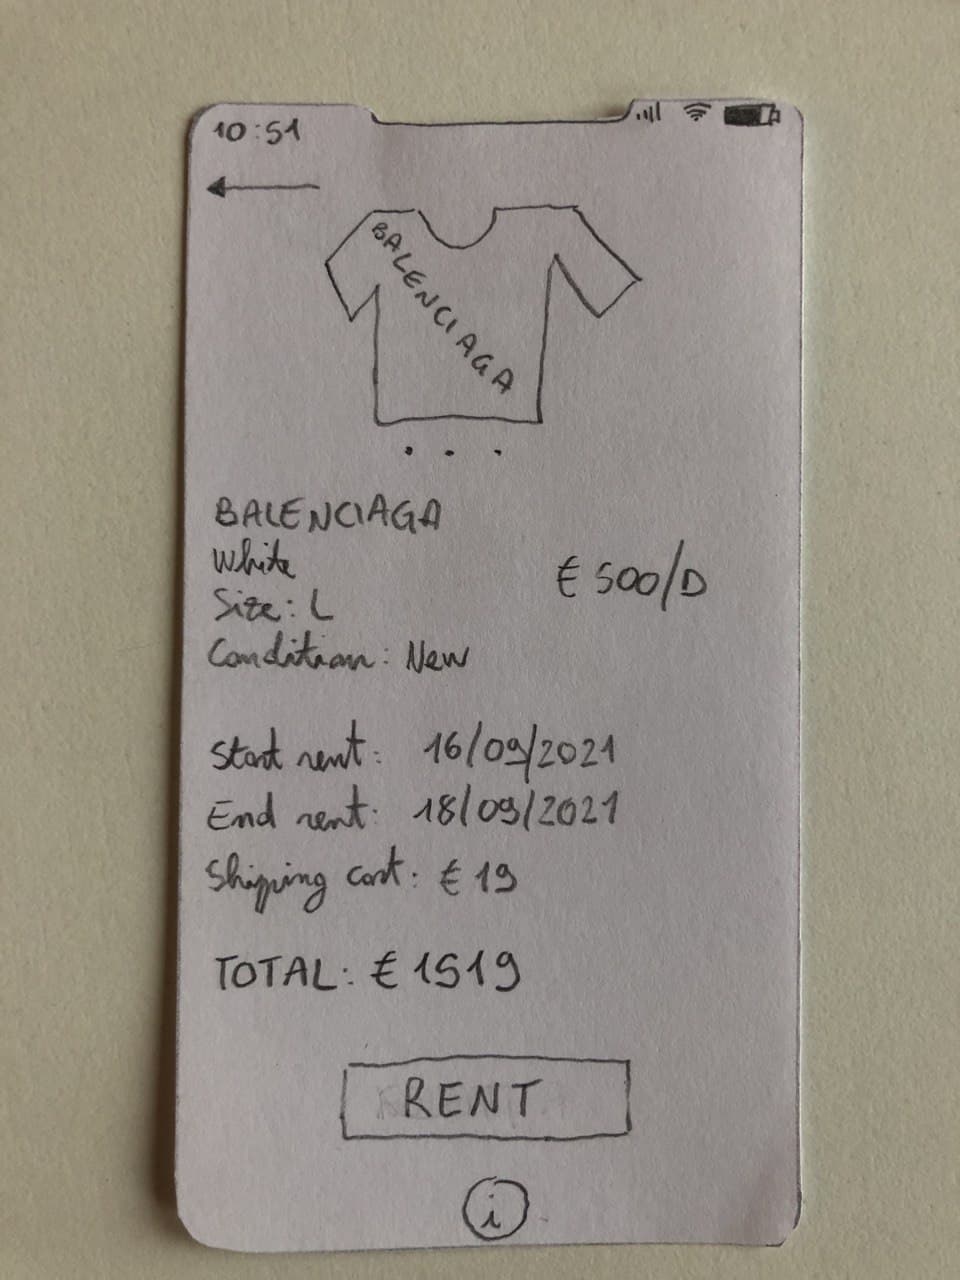 10:51
BALENCIAGA
BALENCIAGA
White
€ 500/D
Size: L
Condition: New
Start rent: 16/09/2021
End rent: 18/09/2021
Shipping cost: € 19
TOTAL: € 1519
RENT
i